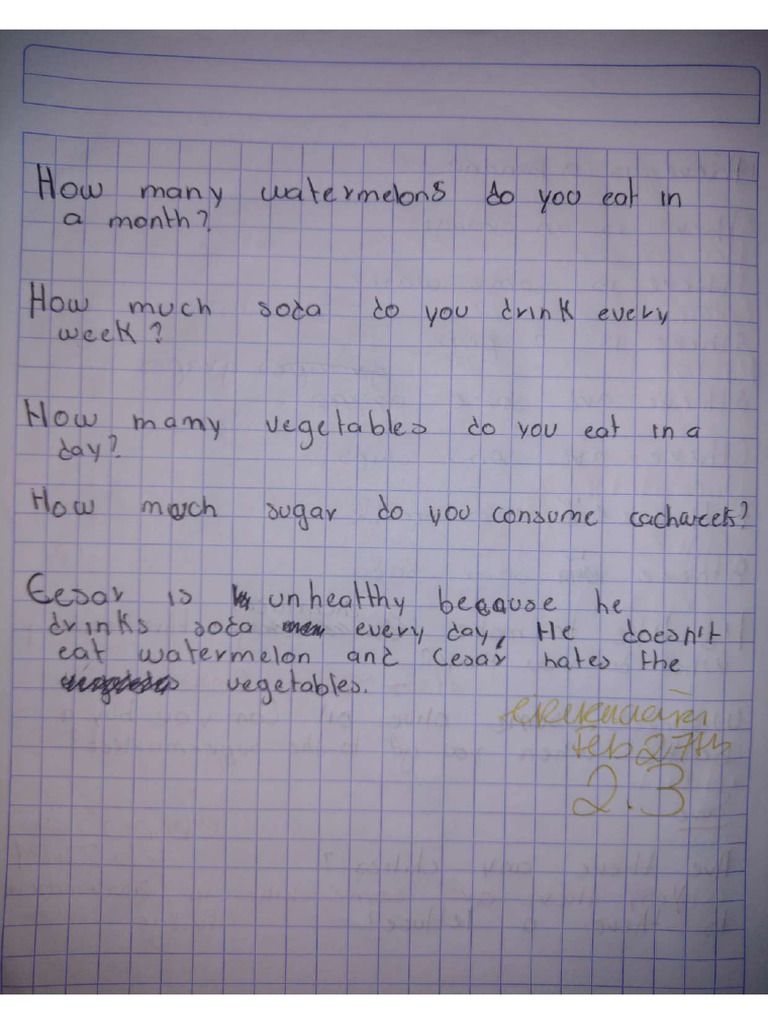 How many watermelons do you eat in
a month?
How much soda do you drink every
week?
How many vegetables do you eat in a
day?
How much sugar do you consume each week?
Cesar is unhealthy because he
drinks soda every day, He doesn't
eat watermelon and Cesar hates the
vegetables.
feb 27th
2.3